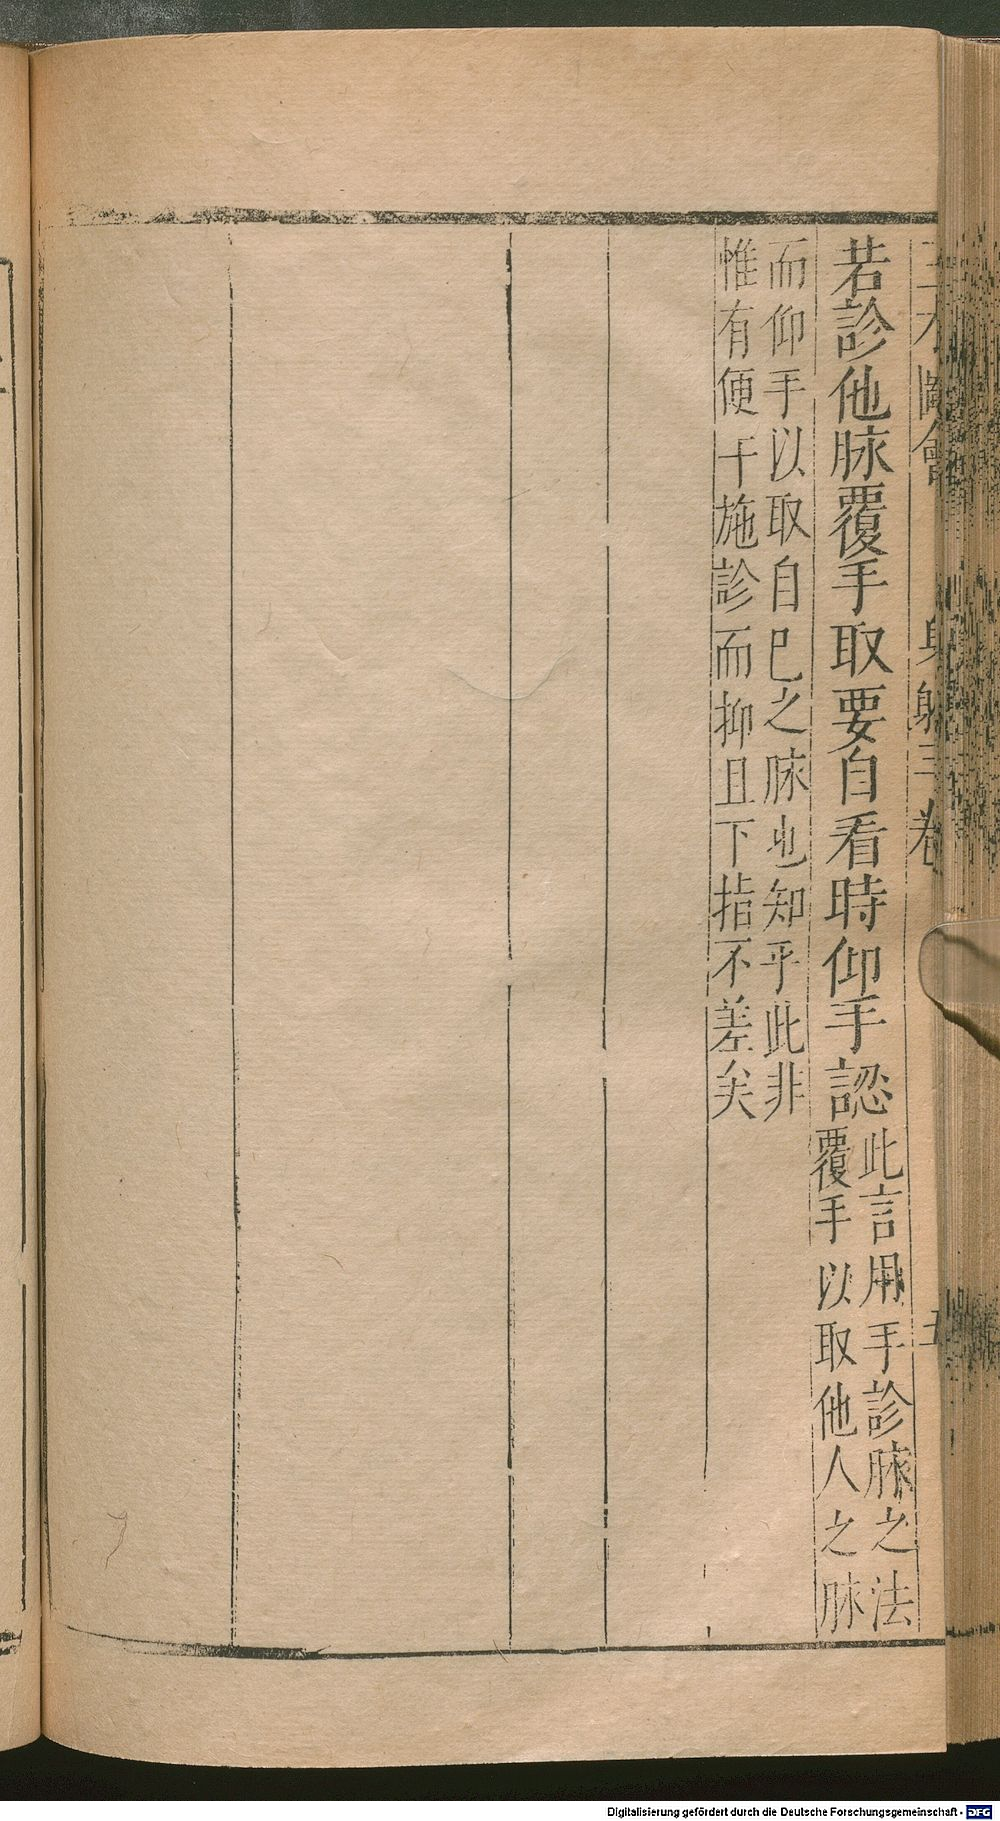 三才圖會 身體三卷 五
若診他脉覆手取要自看時仰手認
此言用手診脉之法
覆手以取他人之脉
而仰手以取自巳之脉也知乎此非
惟有便于施診而抑且下指不差矣
Digitalisierung gefördert durch die Deutsche Forschungsgemeinschaft - DFG